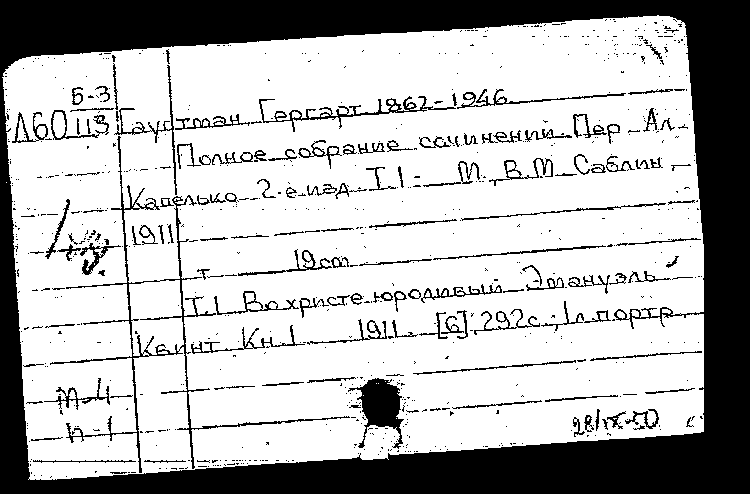 Б-3
Л60 113 Гауптман Гергарт 1862-1946
Полное собрание сочинений Пер Ал
Капелько 2-е изд Т.1- М, В.М Саблин,
1911
т 19 cm
Т.1 Во христе юродивый Эмануэль
Квинт Кн.1 1911. [6], 292с.; 1л.портр.
М-4
п-1
28/IX-50